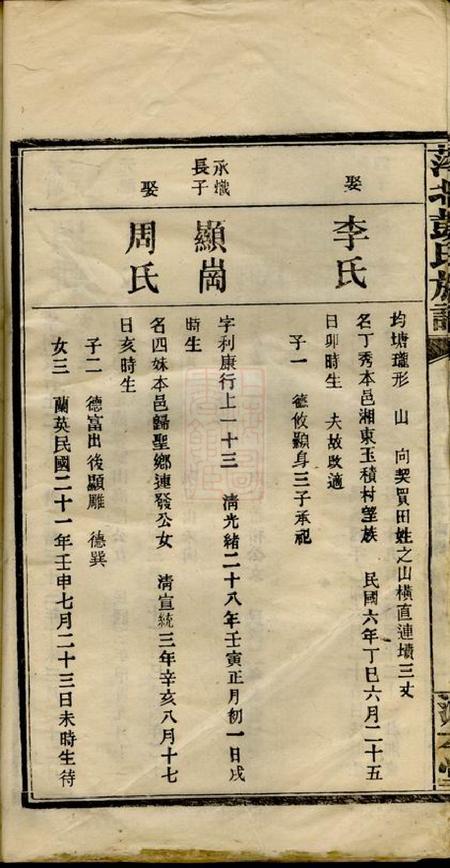 均塘瓏形　山　向契買田姓之山橫直連墳三丈
娶
李氏
名丁秀本邑湘東玉積村望族　民國六年丁巳六月二十五
日卯時生　夫故改適
子一　德攸顯身三子承祀
承熾
長子
顯崗
字利康行上一十三　清光緒二十八年壬寅正月初一日戌
時生
娶
周氏
名四妹本邑歸聖鄉連發公女　清宣統三年辛亥八月十七
日亥時生
子二　德富出後顯雕　德巽
女三　蘭英民國二十一年壬申七月二十三日未時生待